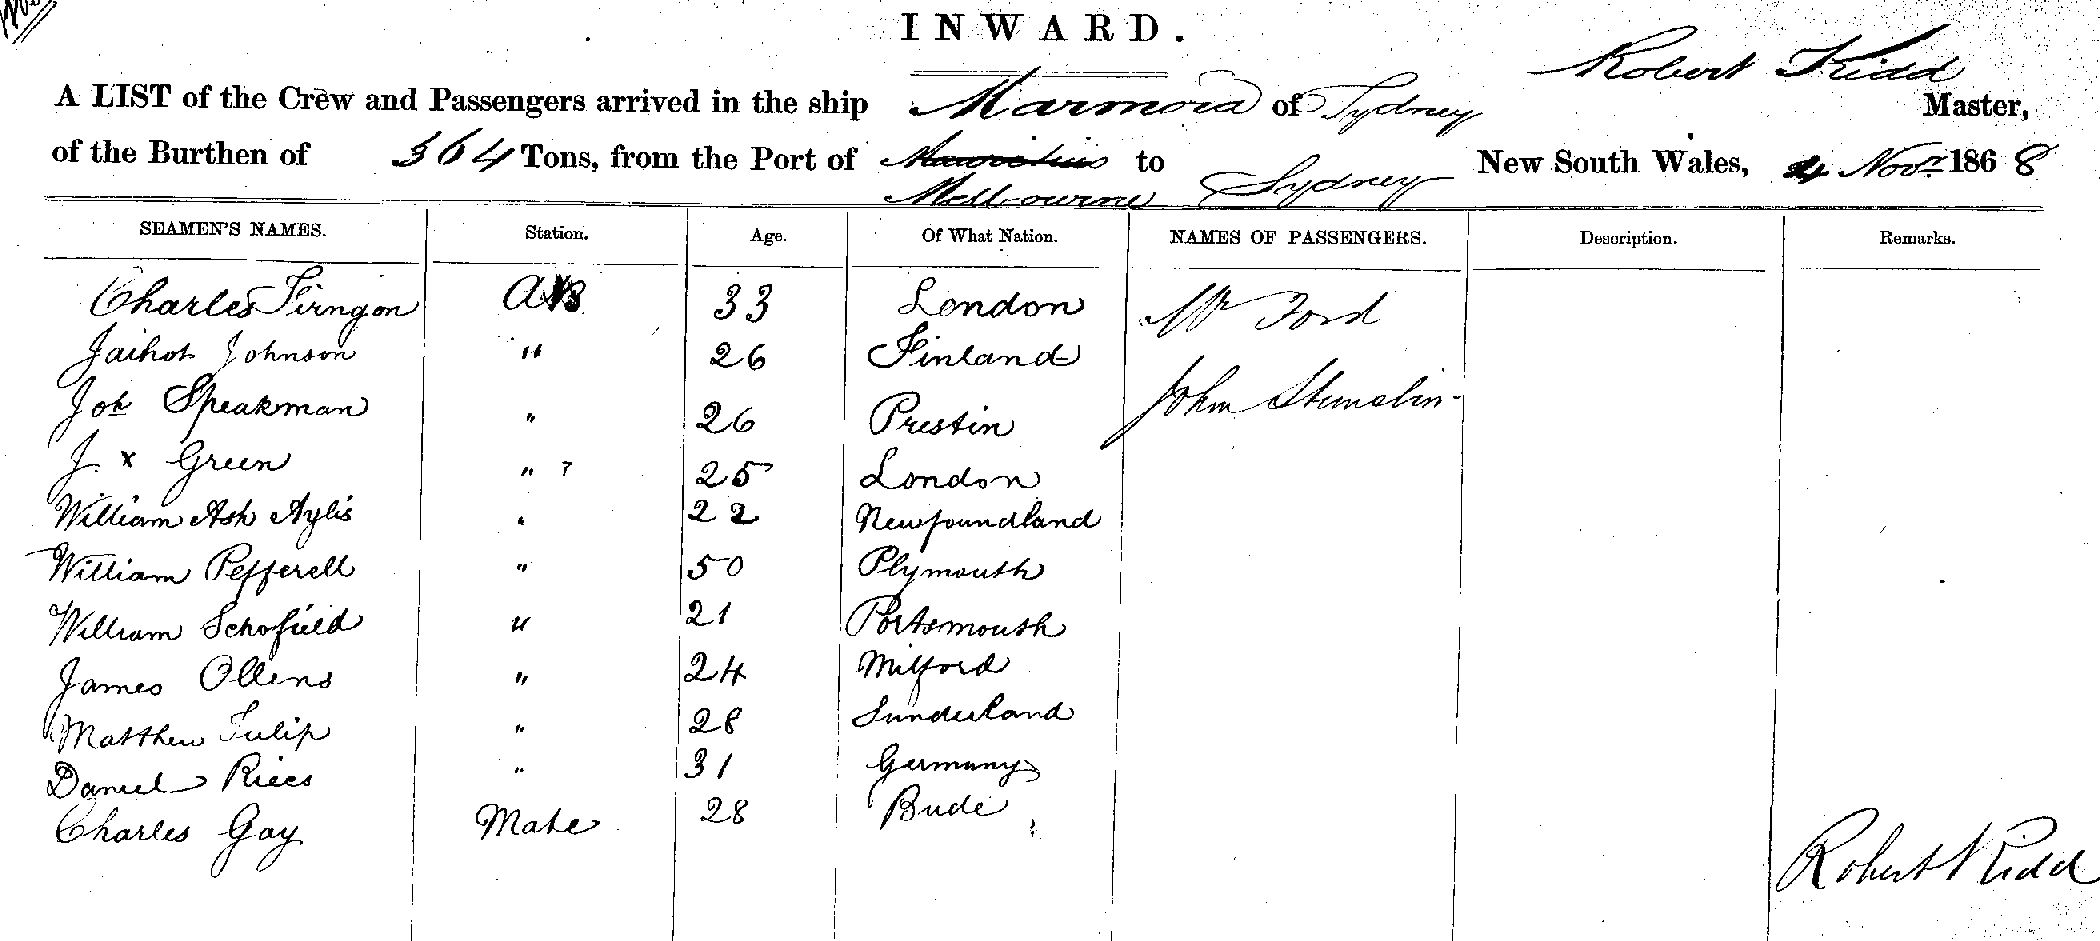 INWARD.
Robert Kidd
A LIST of the Crew and Passengers arrived in the ship Marmora of Sydney Master,
of the Burthen of 364 Tons, from the Port of Mauritius to Sydney New South Wales, 4 Novr. 1868
Melbourne
SEAMEN'S NAMES. Station. Age. Of What Nation. NAMES OF PASSENGERS. Description. Remarks.
Charles Firngon AB 33 London Mr Ford
Jaihot Johnson " 26 Finland
Joh Speakman " 26 Prestin John
J x Green " 25 London
William Ash Aylis " 22 Newfoundland
William Pefferell " 50 Plymouth
William Schofield " 21 Portsmouth
James Ollens " 24 Milford
Matthew Tulip " 28 Sunderland
Daniel Riees " 31 Germany
Charles Gay Mate 28 Bude
Robert Kidd